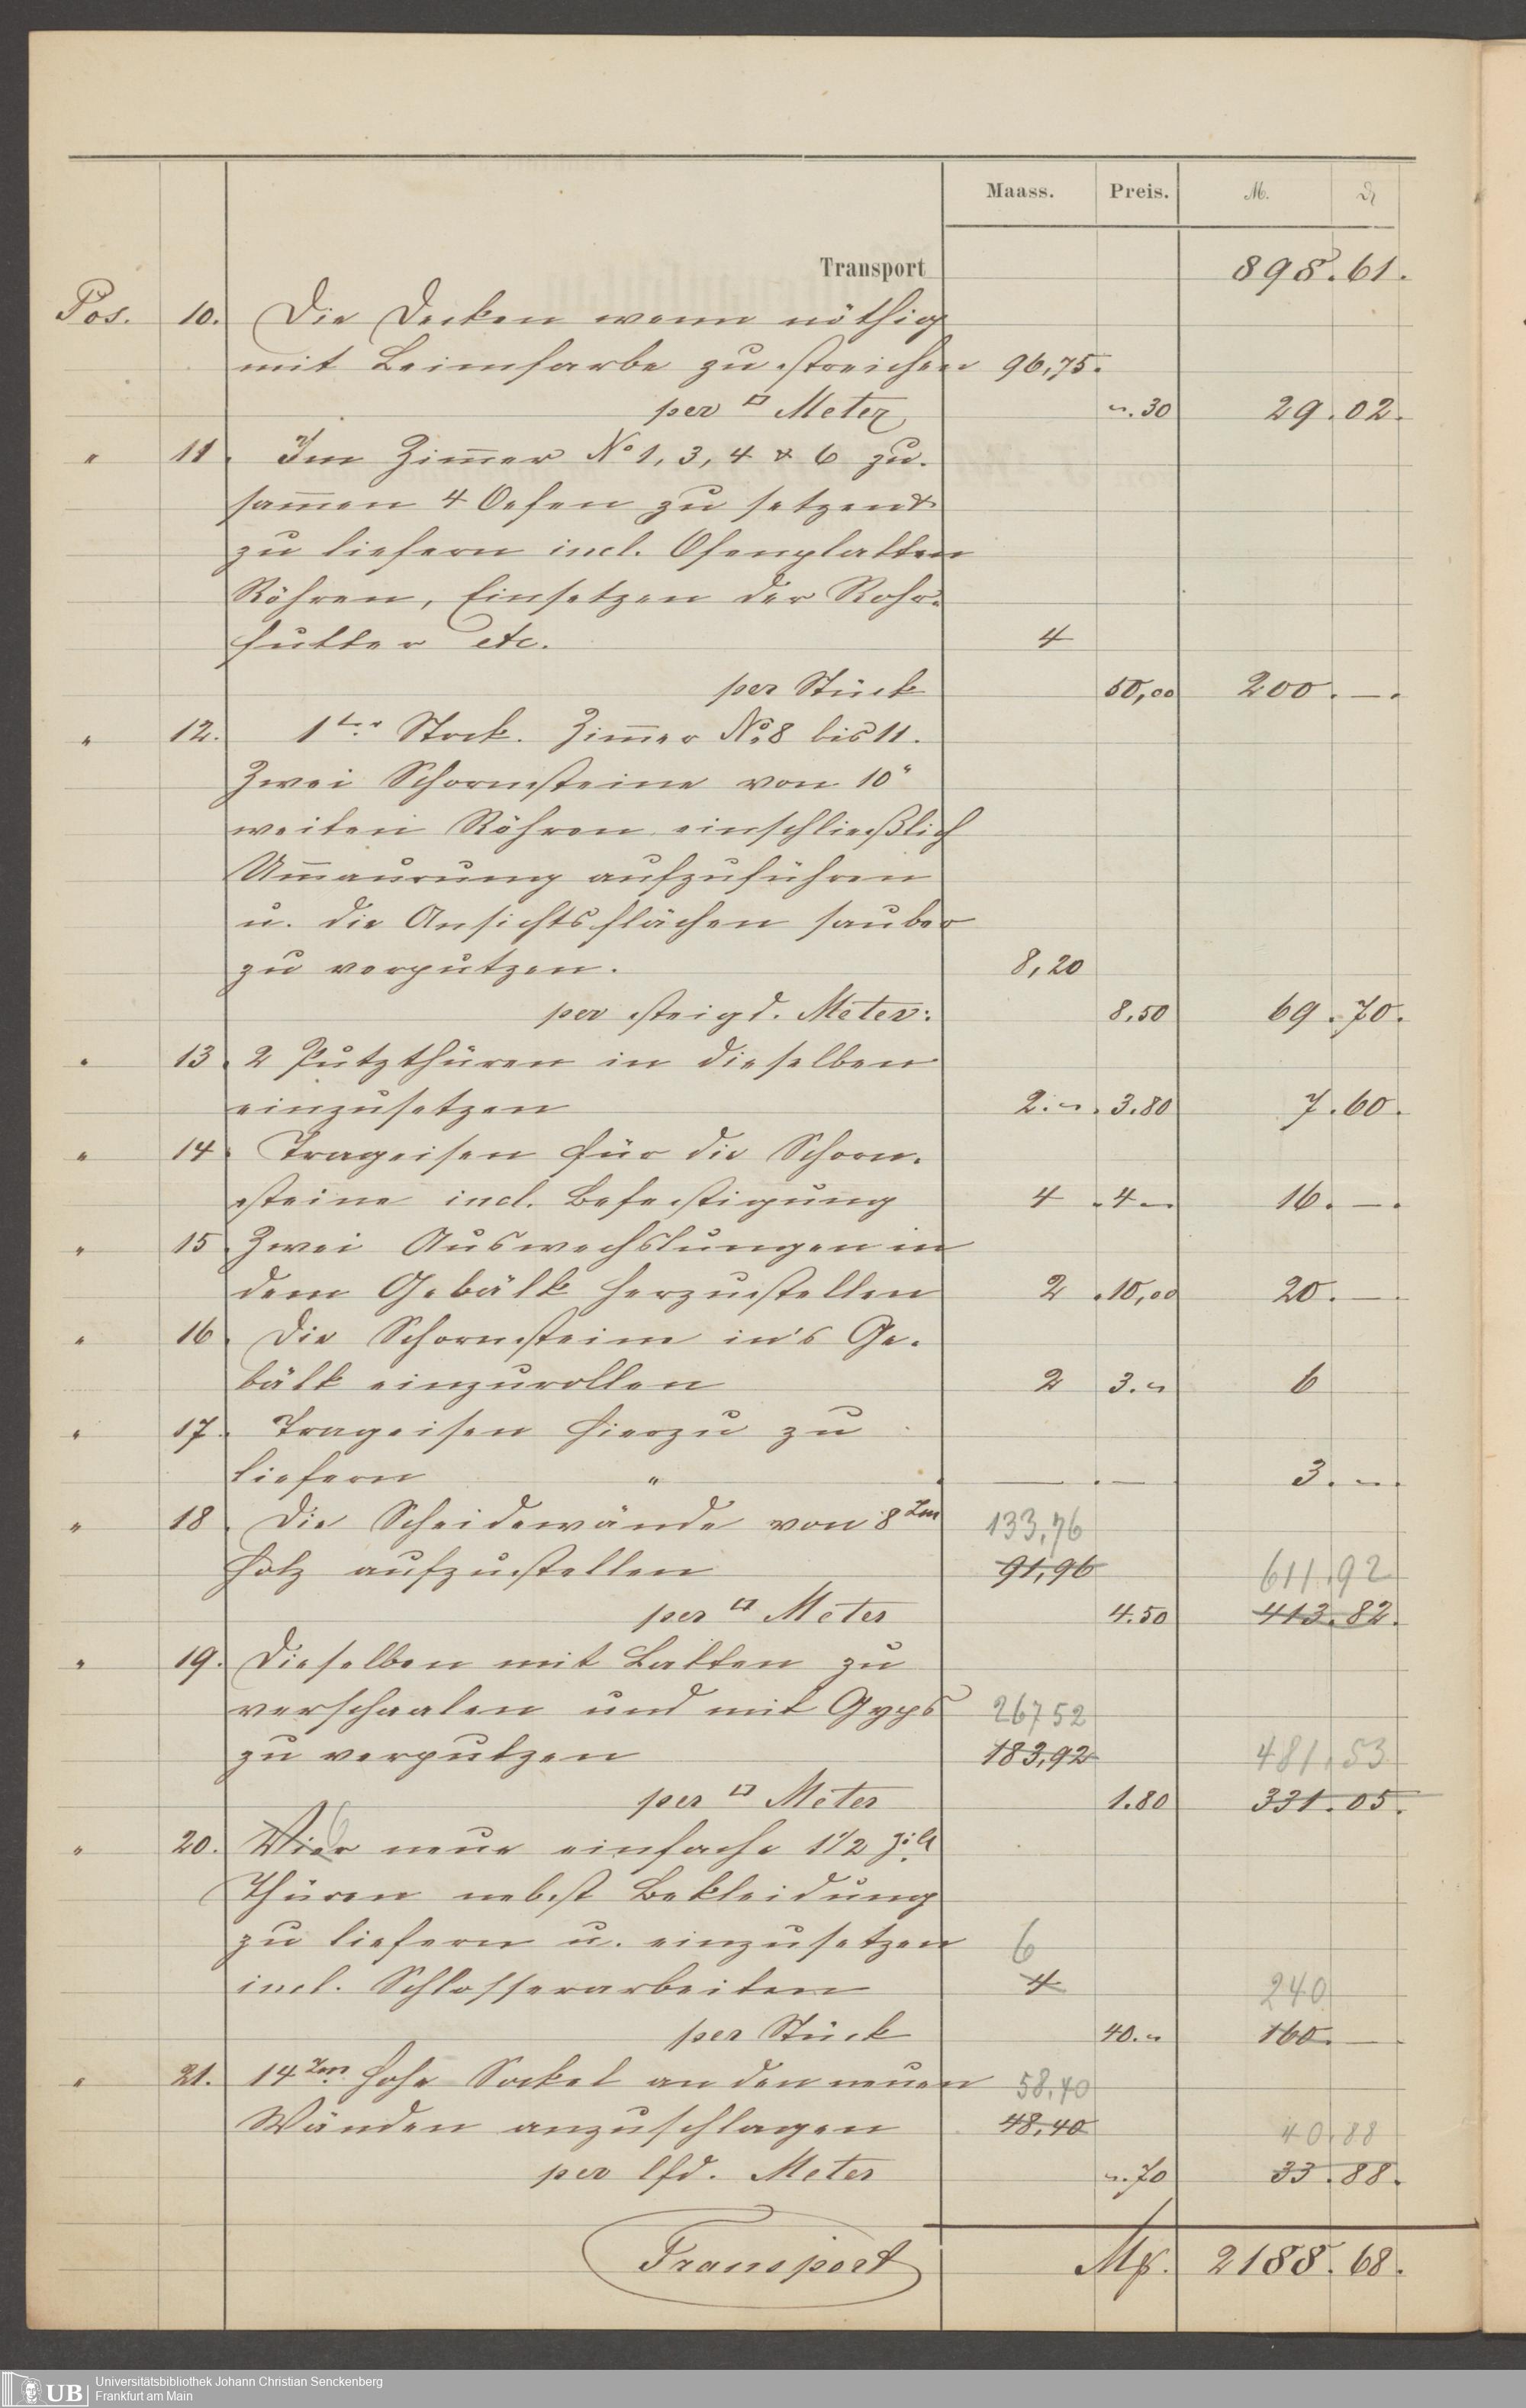 Maass. Preis. M. ₰
Transport 898.61.
Pos. 10. Die Decken wenn nöthig
mit Leimfarbe zu streichen 96,75.
per □ Meter „.30 29.02.
" 11. Im Zim̅er No 1, 3, 4 & 6 zu-
sam̅en 4 Oefen zu setzen &
zu liefern incl. Ofenplatten
Röhren, Einsetzen der Rohr-
futter etc. 4
per Stück 50,00 200.—.
" 12. 1ter Stock. Zim̅er No 8 bis 11.
Zwei Schornsteine von 10"
weiten Röhren einschließlich
Um̅aurung aufzuführen
u. die Ansichtsflächen sauber
zu verputzen. 8,20
per steigd. Meter: 8,50 69.70.
" 13. 2 Putzthüren in dieselben
einzusetzen 2.„. 3.80 7.60.
" 14. Trageisen für die Schorn-
steine incl. Befestigung 4 . 4 — 16.—.
" 15. Zwei Auswechslungen in
dem Gebälk herzustellen 2 . 10,00 20.—.
" 16. Die Schornsteine in's Ge-
bälk einzurollen 2 3.„ 6
" 17. Trageisen hierzu zu
liefern " —.— 3.—.
" 18. Die Scheidewände von 8 Zm 133,76
Holz aufzustellen 91,96 611,92
per □ Meter 4.50 413.82.
" 19. Dieselben mit Latten zu
verschaalen und mit Gyps 26752
zu verputzen 183,92 481,53
per □ Meter 1.80 331.05.
" 20. Vier 6 neue einfache 1 1/2 z:ll
Thüren nebst Bekleidung
zu liefern u. einzusetzen 6
incl. Schlosserarbeiten 4 240
per Stück 40.„ 160.—
" 21. 14 Zm hohe Sockel an den neuen 58,40
Wänden anzuschlagen 48,40 40,88
per lfd. Meter „.70 33.88.
Transport Mk. 2188.68.
UB Universitätsbibliothek Johann Christian Senckenberg
Frankfurt am Main